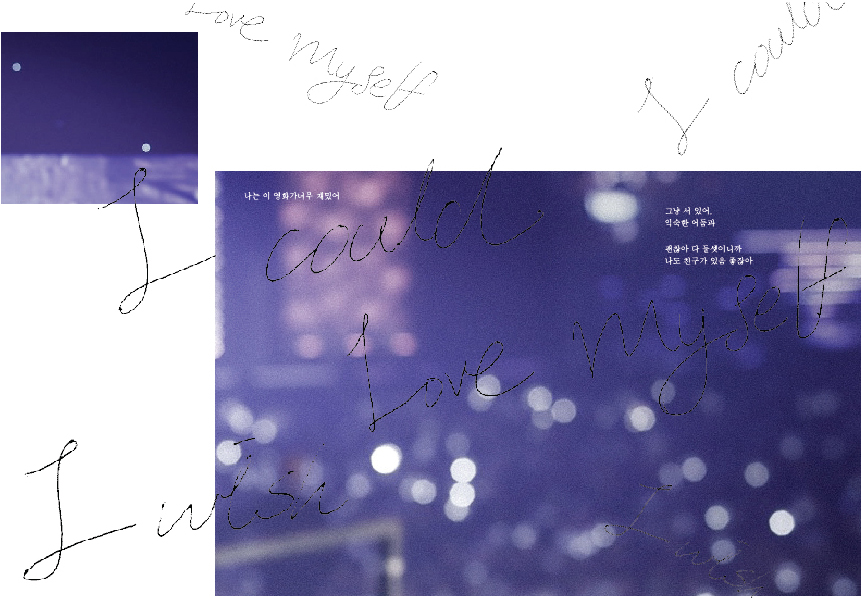 Love
myself
I could
I could
나는 이 영화가너무 재밌어
그냥 서 있어.
익숙한 어둠과
괜찮아 다 둘셋이니까
나도 친구가 있음 좋잖아
Love myself
I wish
I wish